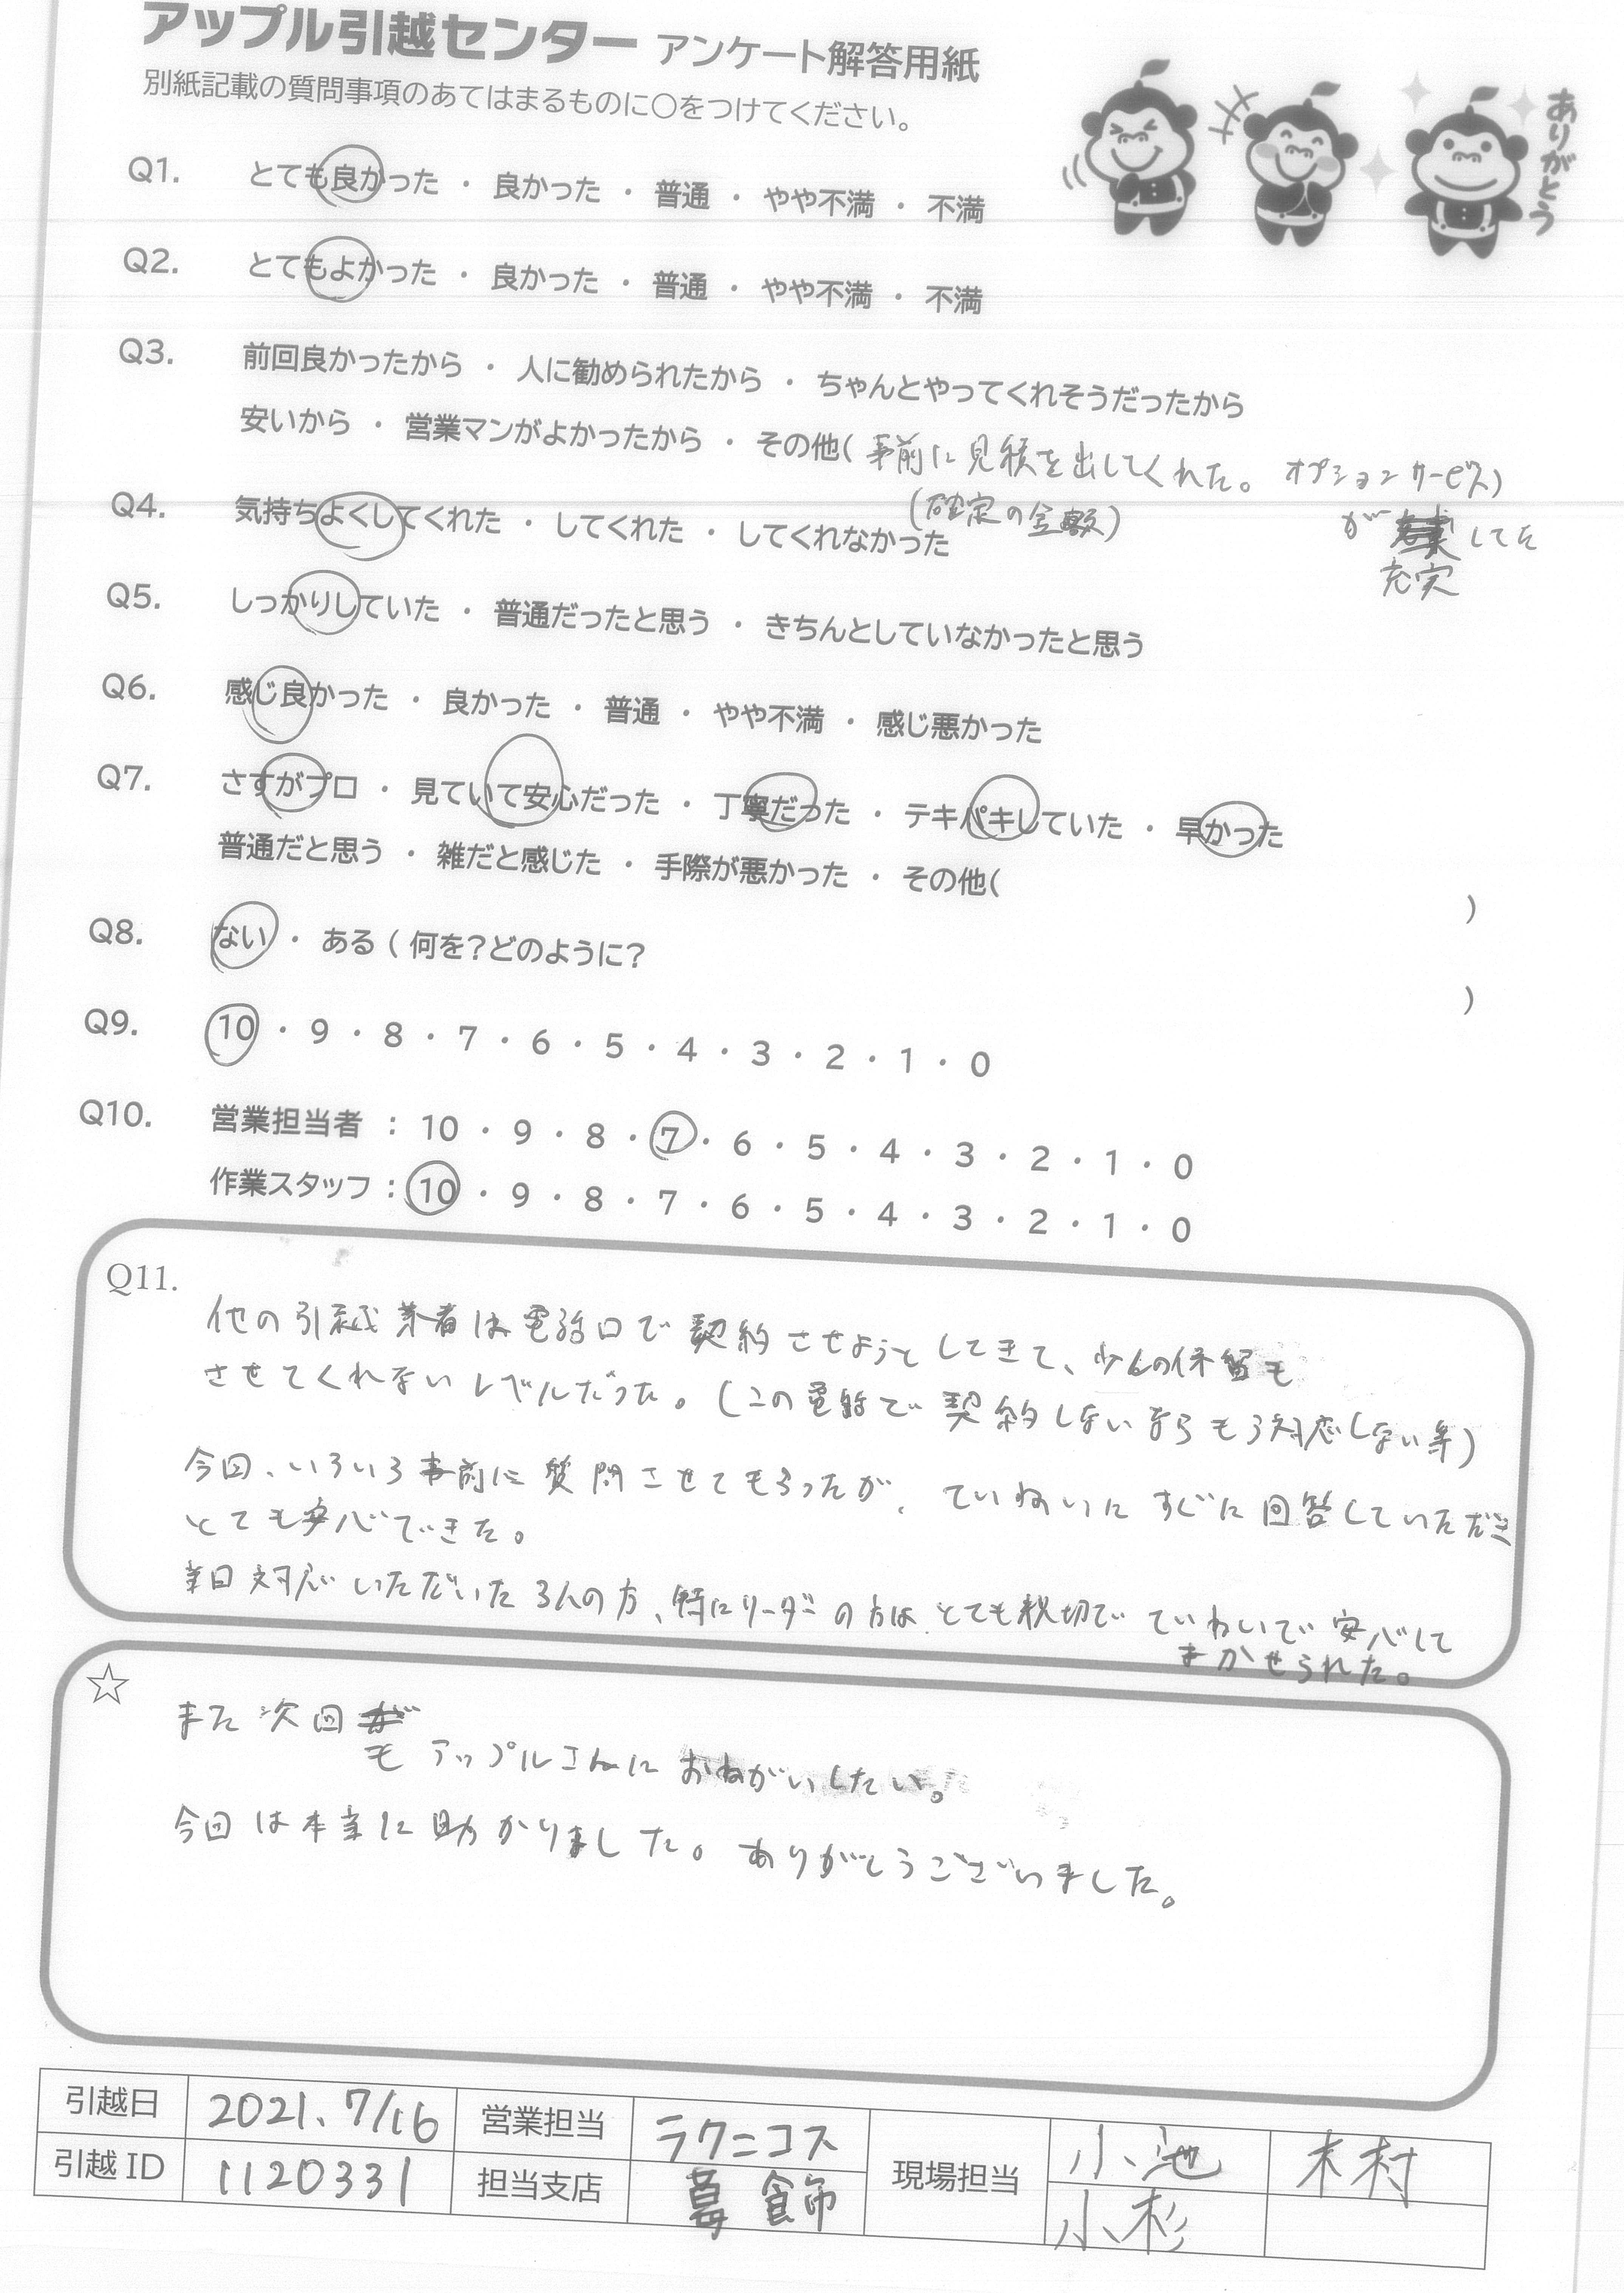 アップル引越センター アンケート解答用紙
別紙記載の質問事項のあてはまるものに○をつけてください。
ありがとう
Q1. とても良かった ・ 良かった ・ 普通 ・ やや不満 ・ 不満
Q2. とてもよかった ・ 良かった ・ 普通 ・ やや不満 ・ 不満
Q3. 前回良かったから ・ 人に勧められたから ・ ちゃんとやってくれそうだったから
安いから ・ 営業マンがよかったから ・ その他( 事前に見積を出してくれた。 オプションサービス)
(確定の金額) が してた
充実
Q4. 気持ちよくしてくれた ・ してくれた ・ してくれなかった
Q5. しっかりしていた ・ 普通だったと思う ・ きちんとしていなかったと思う
Q6. 感じ良かった ・ 良かった ・ 普通 ・ やや不満 ・ 感じ悪かった
Q7. さすがプロ ・ 見ていて安心だった ・ 丁寧だった ・ テキパキしていた ・ 早かった
普通だと思う ・ 雑だと感じた ・ 手際が悪かった ・ その他( )
Q8. ない ・ ある ( 何を?どのように? )
Q9. 10 ・ 9 ・ 8 ・ 7 ・ 6 ・ 5 ・ 4 ・ 3 ・ 2 ・ 1 ・ 0
Q10. 営業担当者 : 10 ・ 9 ・ 8 ・ 7 ・ 6 ・ 5 ・ 4 ・ 3 ・ 2 ・ 1 ・ 0
作業スタッフ : 10 ・ 9 ・ 8 ・ 7 ・ 6 ・ 5 ・ 4 ・ 3 ・ 2 ・ 1 ・ 0
Q11.
他の引越業者は電話口で契約させようとしてきて、少しの保留も
させてくれないレベルだった。(この電話で契約しないならもう対応しない等)
今回、いろいろ事前に質問させてもらったが、ていねいにすぐに回答していただき
とても安心できた。
当日対応いただいた3人の方、特にリーダーの方はとても親切でていねいで安心して
まかせられた。
☆
また次回
もアップルさんにおねがいしたい。
今回は本当に助かりました。ありがとうございました。
引越日 2021.7/16 営業担当 ラクニコス 現場担当 小池 木村
引越ID 1120331 担当支店 葛飾 小杉